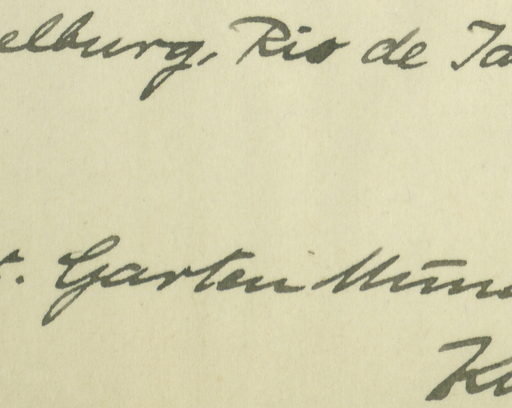 elburg, Rio de Ja
t. Garten Mün
K